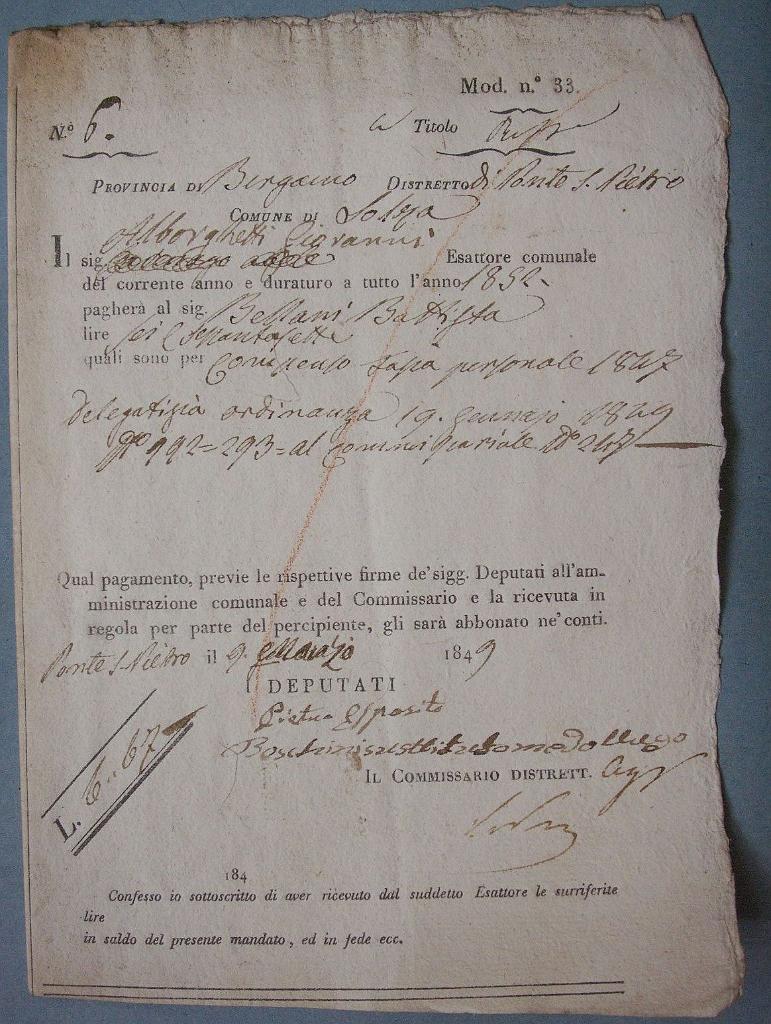 Mod. n.º 33.
N.º 6.
Titolo
PROVINCIA DI Bergamo DISTRETTO di Ponte S. Piétro
COMUNE DI Solza
Alborghetti Giovanni
Il sig. Esattore comunale
del corrente anno e duraturo a tutto l'anno 1852-
pagherà al sig. Bellani Battista
lire sei C settantasette
quali sono per Compenso tassa personale 1847
Delegatizia ordinanza 19. Gennajo 1849
Nº 992=293=al commissariale Nº 247
Qual pagamento, previe le rispettive firme de' sigg. Deputati all'am-
ministrazione comunale e del Commissario e la ricevuta in
regola per parte del percipiente, gli sarà abbonato ne' conti.
Ponte S. Piétro il 9. Marzo 1849
I DEPUTATI
Pietro Esposito
Boschini
IL COMMISSARIO DISTRETT.
L. 6.. 67
184
Confesso io sottoscritto di aver ricevuto dal suddetto Esattore le surriferite
lire
in saldo del presente mandato, ed in fede ecc.